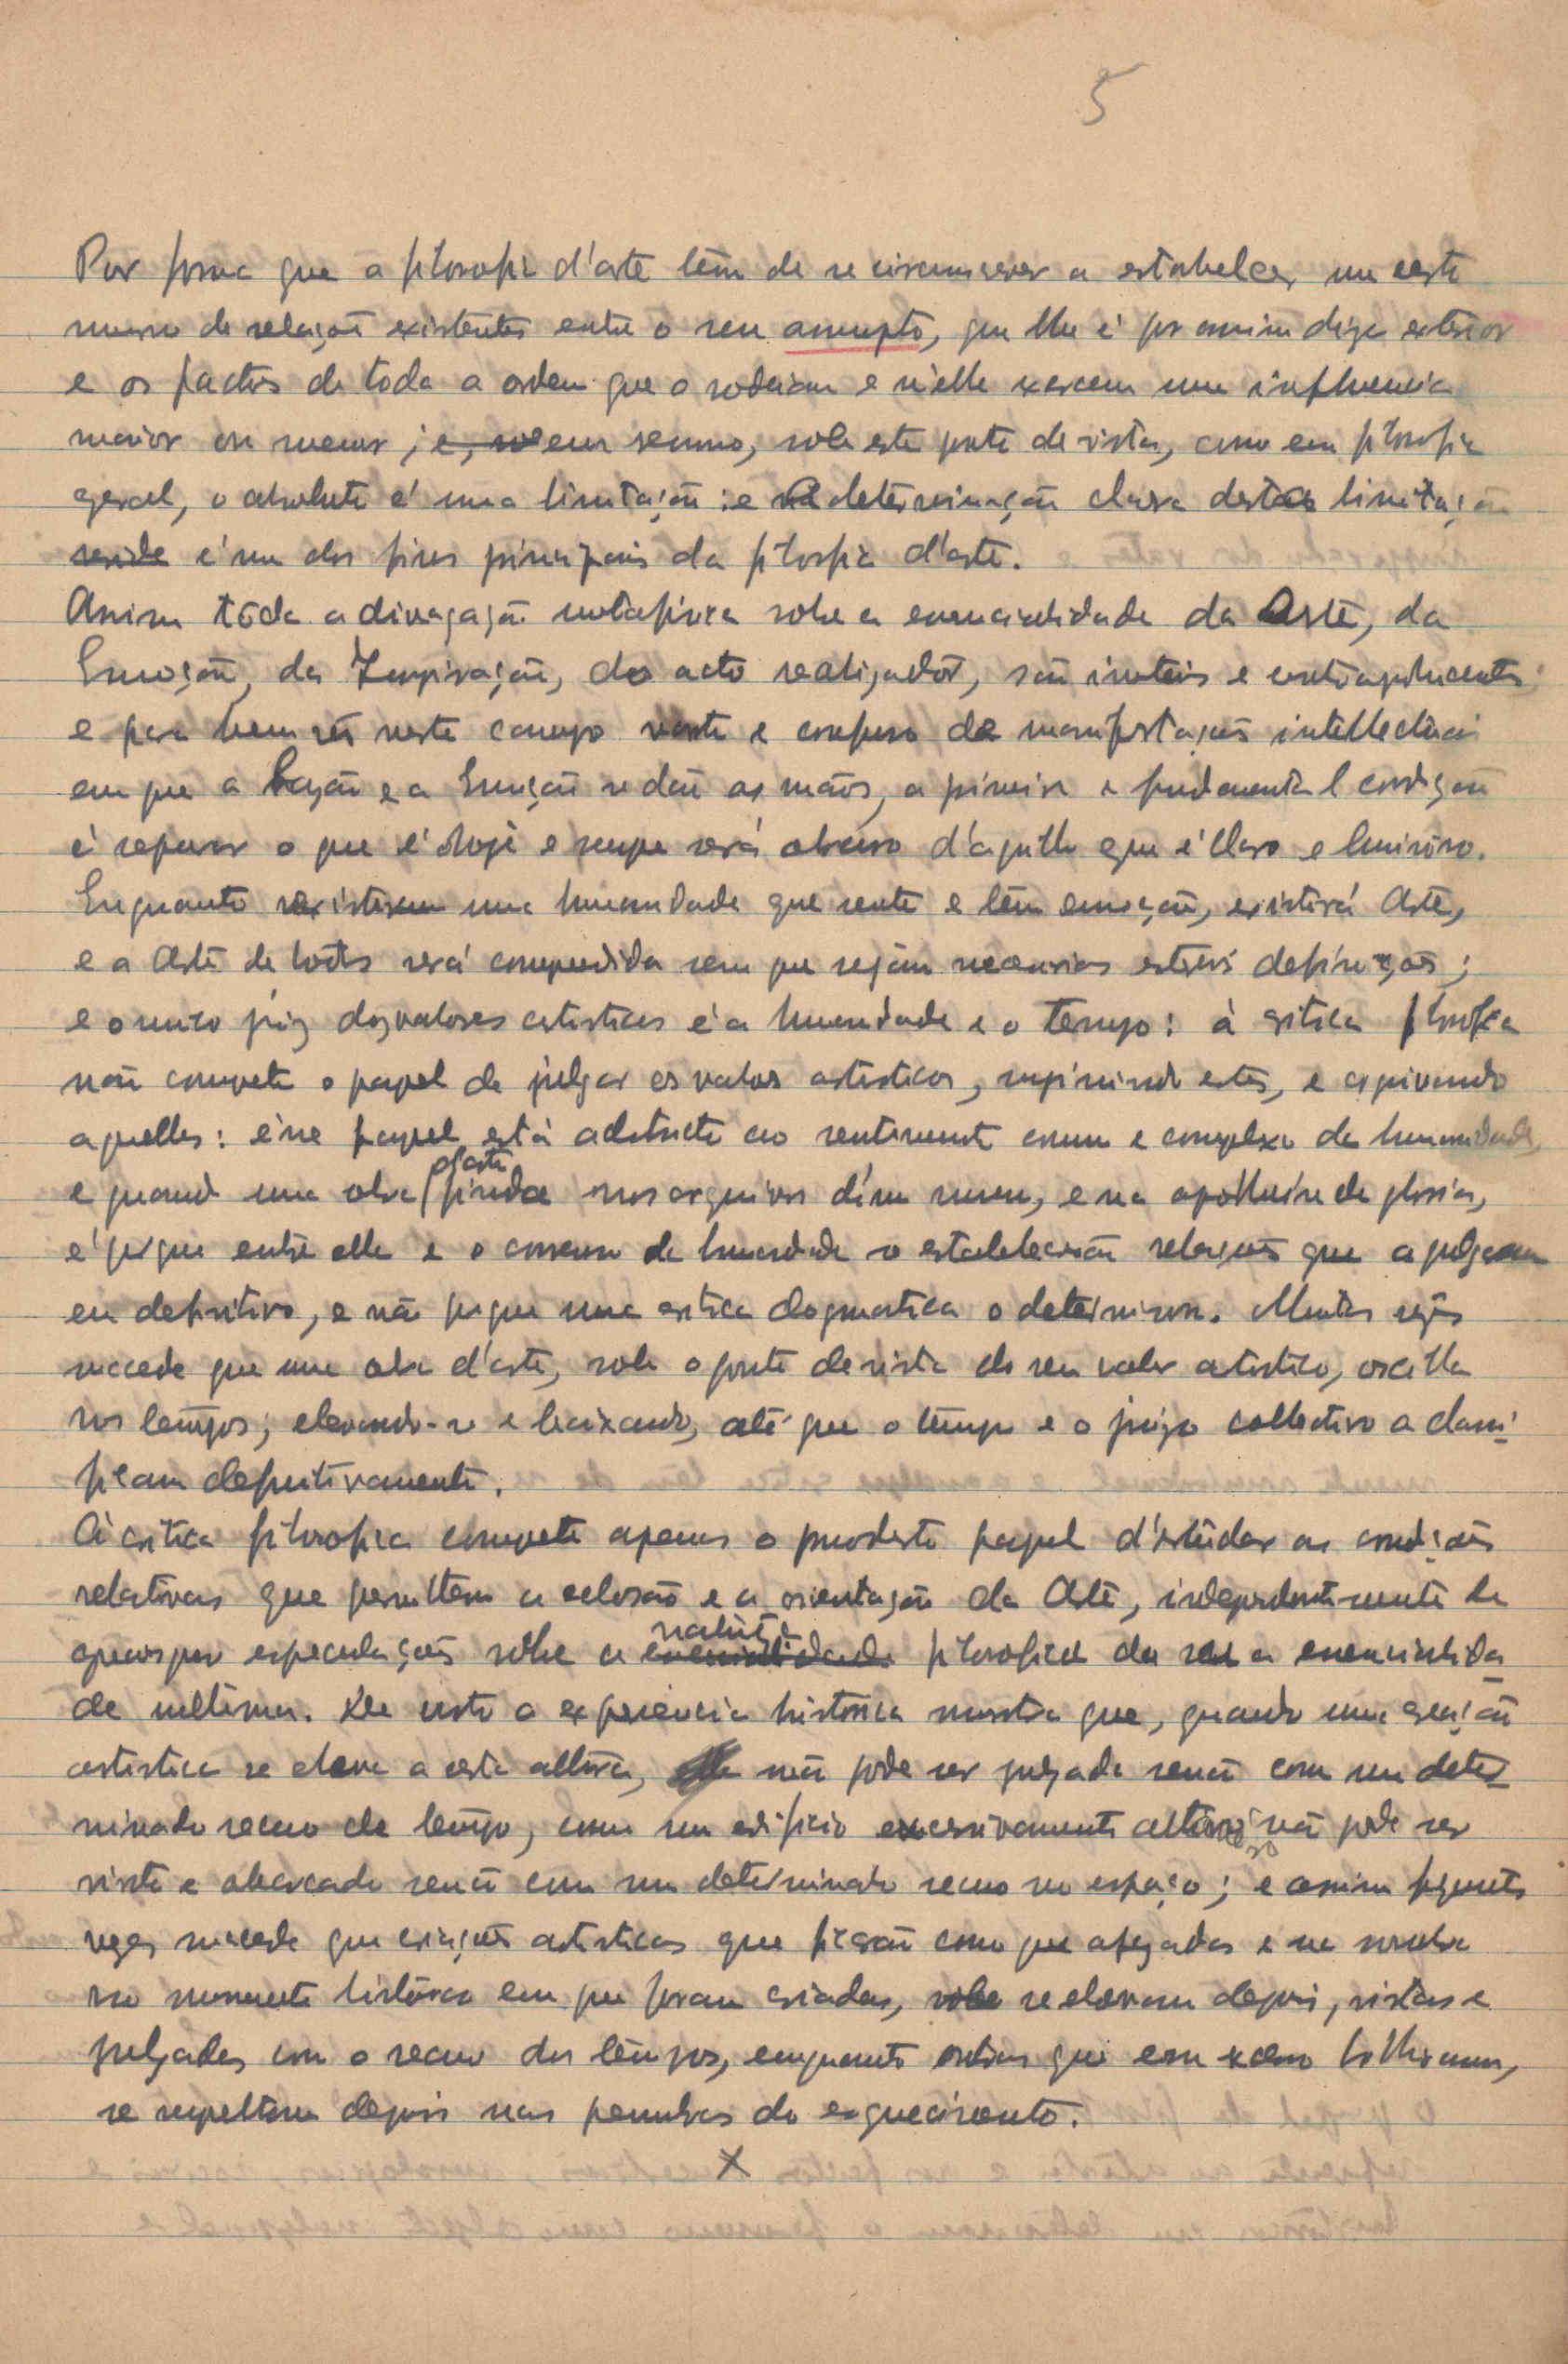 5
Por forma que a filosofia d'arte têm de se circunscrever a estabelecer um certo
numero de relações existentes entre o seu assumpto, que lhe é por assim dizer exterior
e os factos de toda a ordem que o rodeiam e n'elle exercem uma influencia
maior ou menor; e, em resumo, sob este ponto de vista, como em filosofia
geral, o absoluto é uma limitação: e a determinação clara desta limitação
reside é um dos fins principais da filosofia d'arte.
Assim tôda a divagação metafisica sobre a essencialidade da Arte, da
Emoção, da Inspiração, do acto realizador, são inuteis e
e para bem nêste campo vasto e confuso de manifestações intellectuais
em que a Razão e a Emoção se dão as mãos, a primeira e fundamental condição
é separar o que é hoje e sempre será obscuro d'aquillo que é claro e luminoso.
Enquanto existir uma humanidade que sente e têm emoção, existirá Arte,
e a Arte de todos será comprendida sem que sejam necessarias definições;
e o unico juiz dos valores artisticos é a humanidade e o tempo: à critica filosofica
não compete o papel de julgar os valores artisticos, suprimindo estes, e
aquelles: êsse papel está adstricto ao sentimento comum e complexo da humanidade,
e quando uma obra d'arte finda nos arquivos d'um museu, e na apotheose da gloria,
é porque entre ella e o consenso da humanidade se estabeleceram relações que a julgaram
em definitivo, e não porque uma critica dogmatica o determinou. Muitas vezes
succede que uma obra d'arte, sob o ponto de vista do seu valor artistico, oscilla
nos tempos; elevando-se e baixando, até que o tempo e o juizo collectivo a classi-
ficam definitivamente.
À critica filosofica compete apenas o modesto papel d'estudar as condições
relativas que permittem a eclosão e a orientação da Arte, independentemente de
quaisquer especulações sobre a essencialidade natureza filosofica da sua essencialida-
de ultima. De resto a experiencia histórica mostra que, quando uma creação
artistica se eleva a certa altura, não pode ser julgada senão com um deter-
minado recuo de tempo, como um edificio excessivamente alteroso não pode ser
visto e abarcado senão com um determinado recuo no espaço; e assim frequentes
vezes succede que criações artisticas que ficarão como que apagadas e na sombra
no momento histórico em que foram criadas, se elevam depois, vistas e
julgadas com o recuo dos tempos, emquanto outras que em excesso brilharam,
se sepultam depois nas penumbras do esquecimento.
X